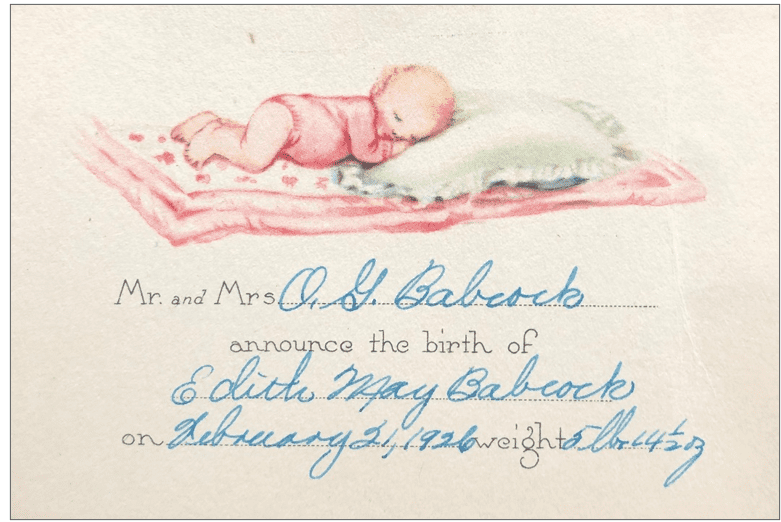 Mr. and Mrs. O. G. Babcock
announce the birth of
Edith May Babcock
on February 21, 1926 weight 5 lbs 14½ oz